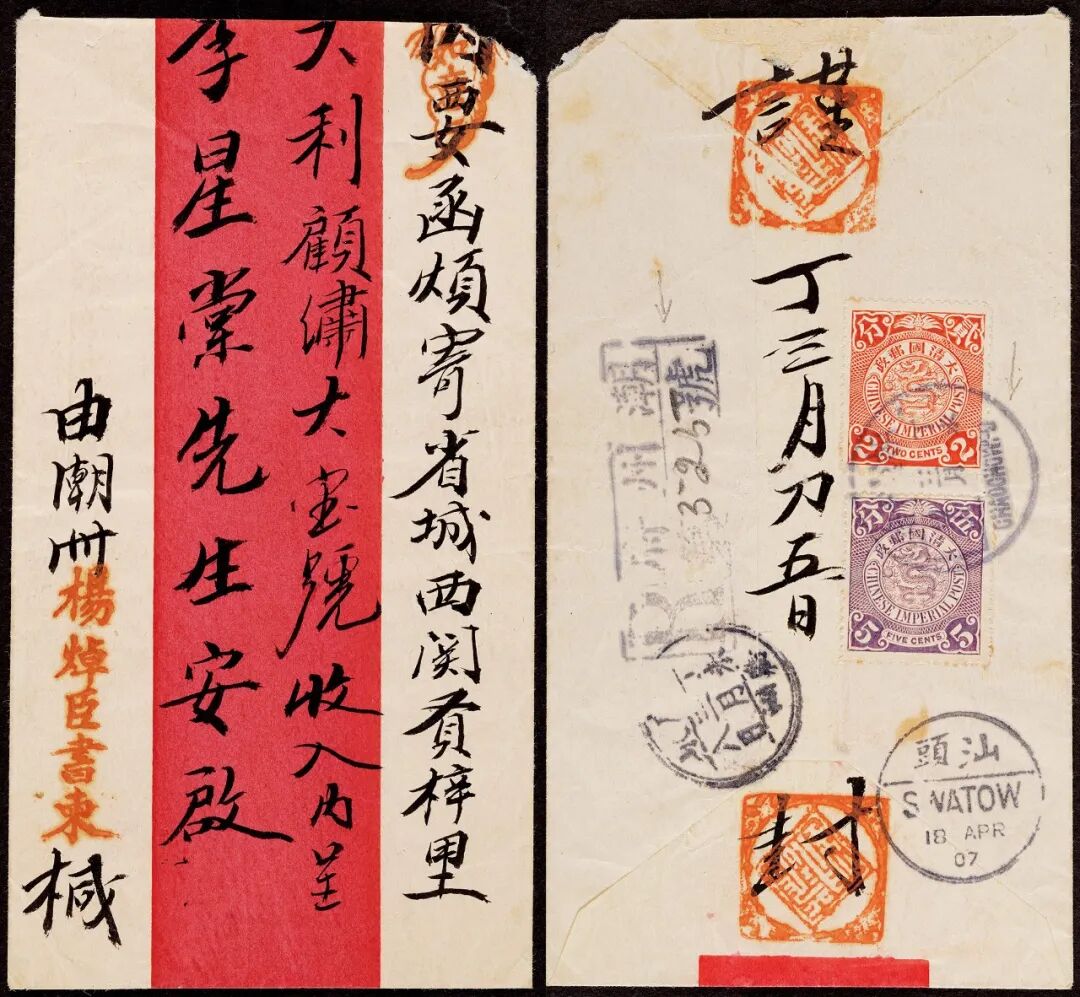 內要函煩寄省城西関賁梓里
大利顧繡大宝號收入內呈
李星棠先生安啟
由潮州楊焯臣書柬椷
謹
丁三月初五日
封
分 貳
大清國郵政
CHINESE IMPERIAL POST
2 2
TWO CENTS
分 伍
大清國郵政
CHINESE IMPERIAL POST
5 5
FIVE CENTS
CHAOCHOWFU
潮州府
R
326號
三月
八日
汕頭
SWATOW
18 APR
07